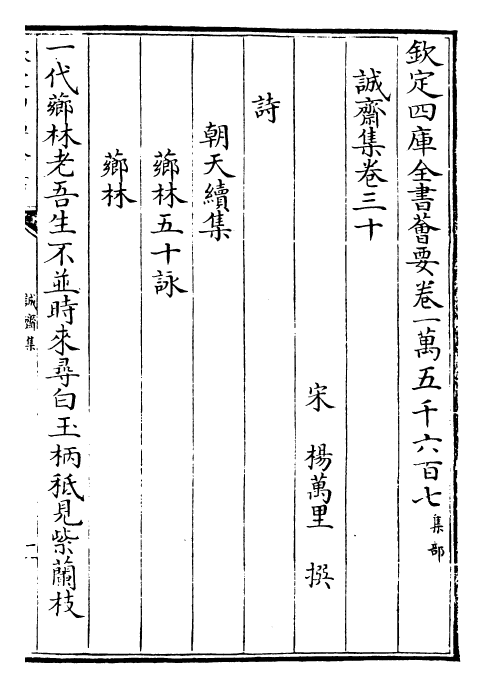 欽定四庫全書薈要卷一萬五千六百七
集部
誠齋集卷三十
宋 楊萬里 撰
詩
朝天續集
薌林五十詠
薌林
一代薌林老吾生不並時來尋白玉柄秪見紫蘭枝
誠齋集
一